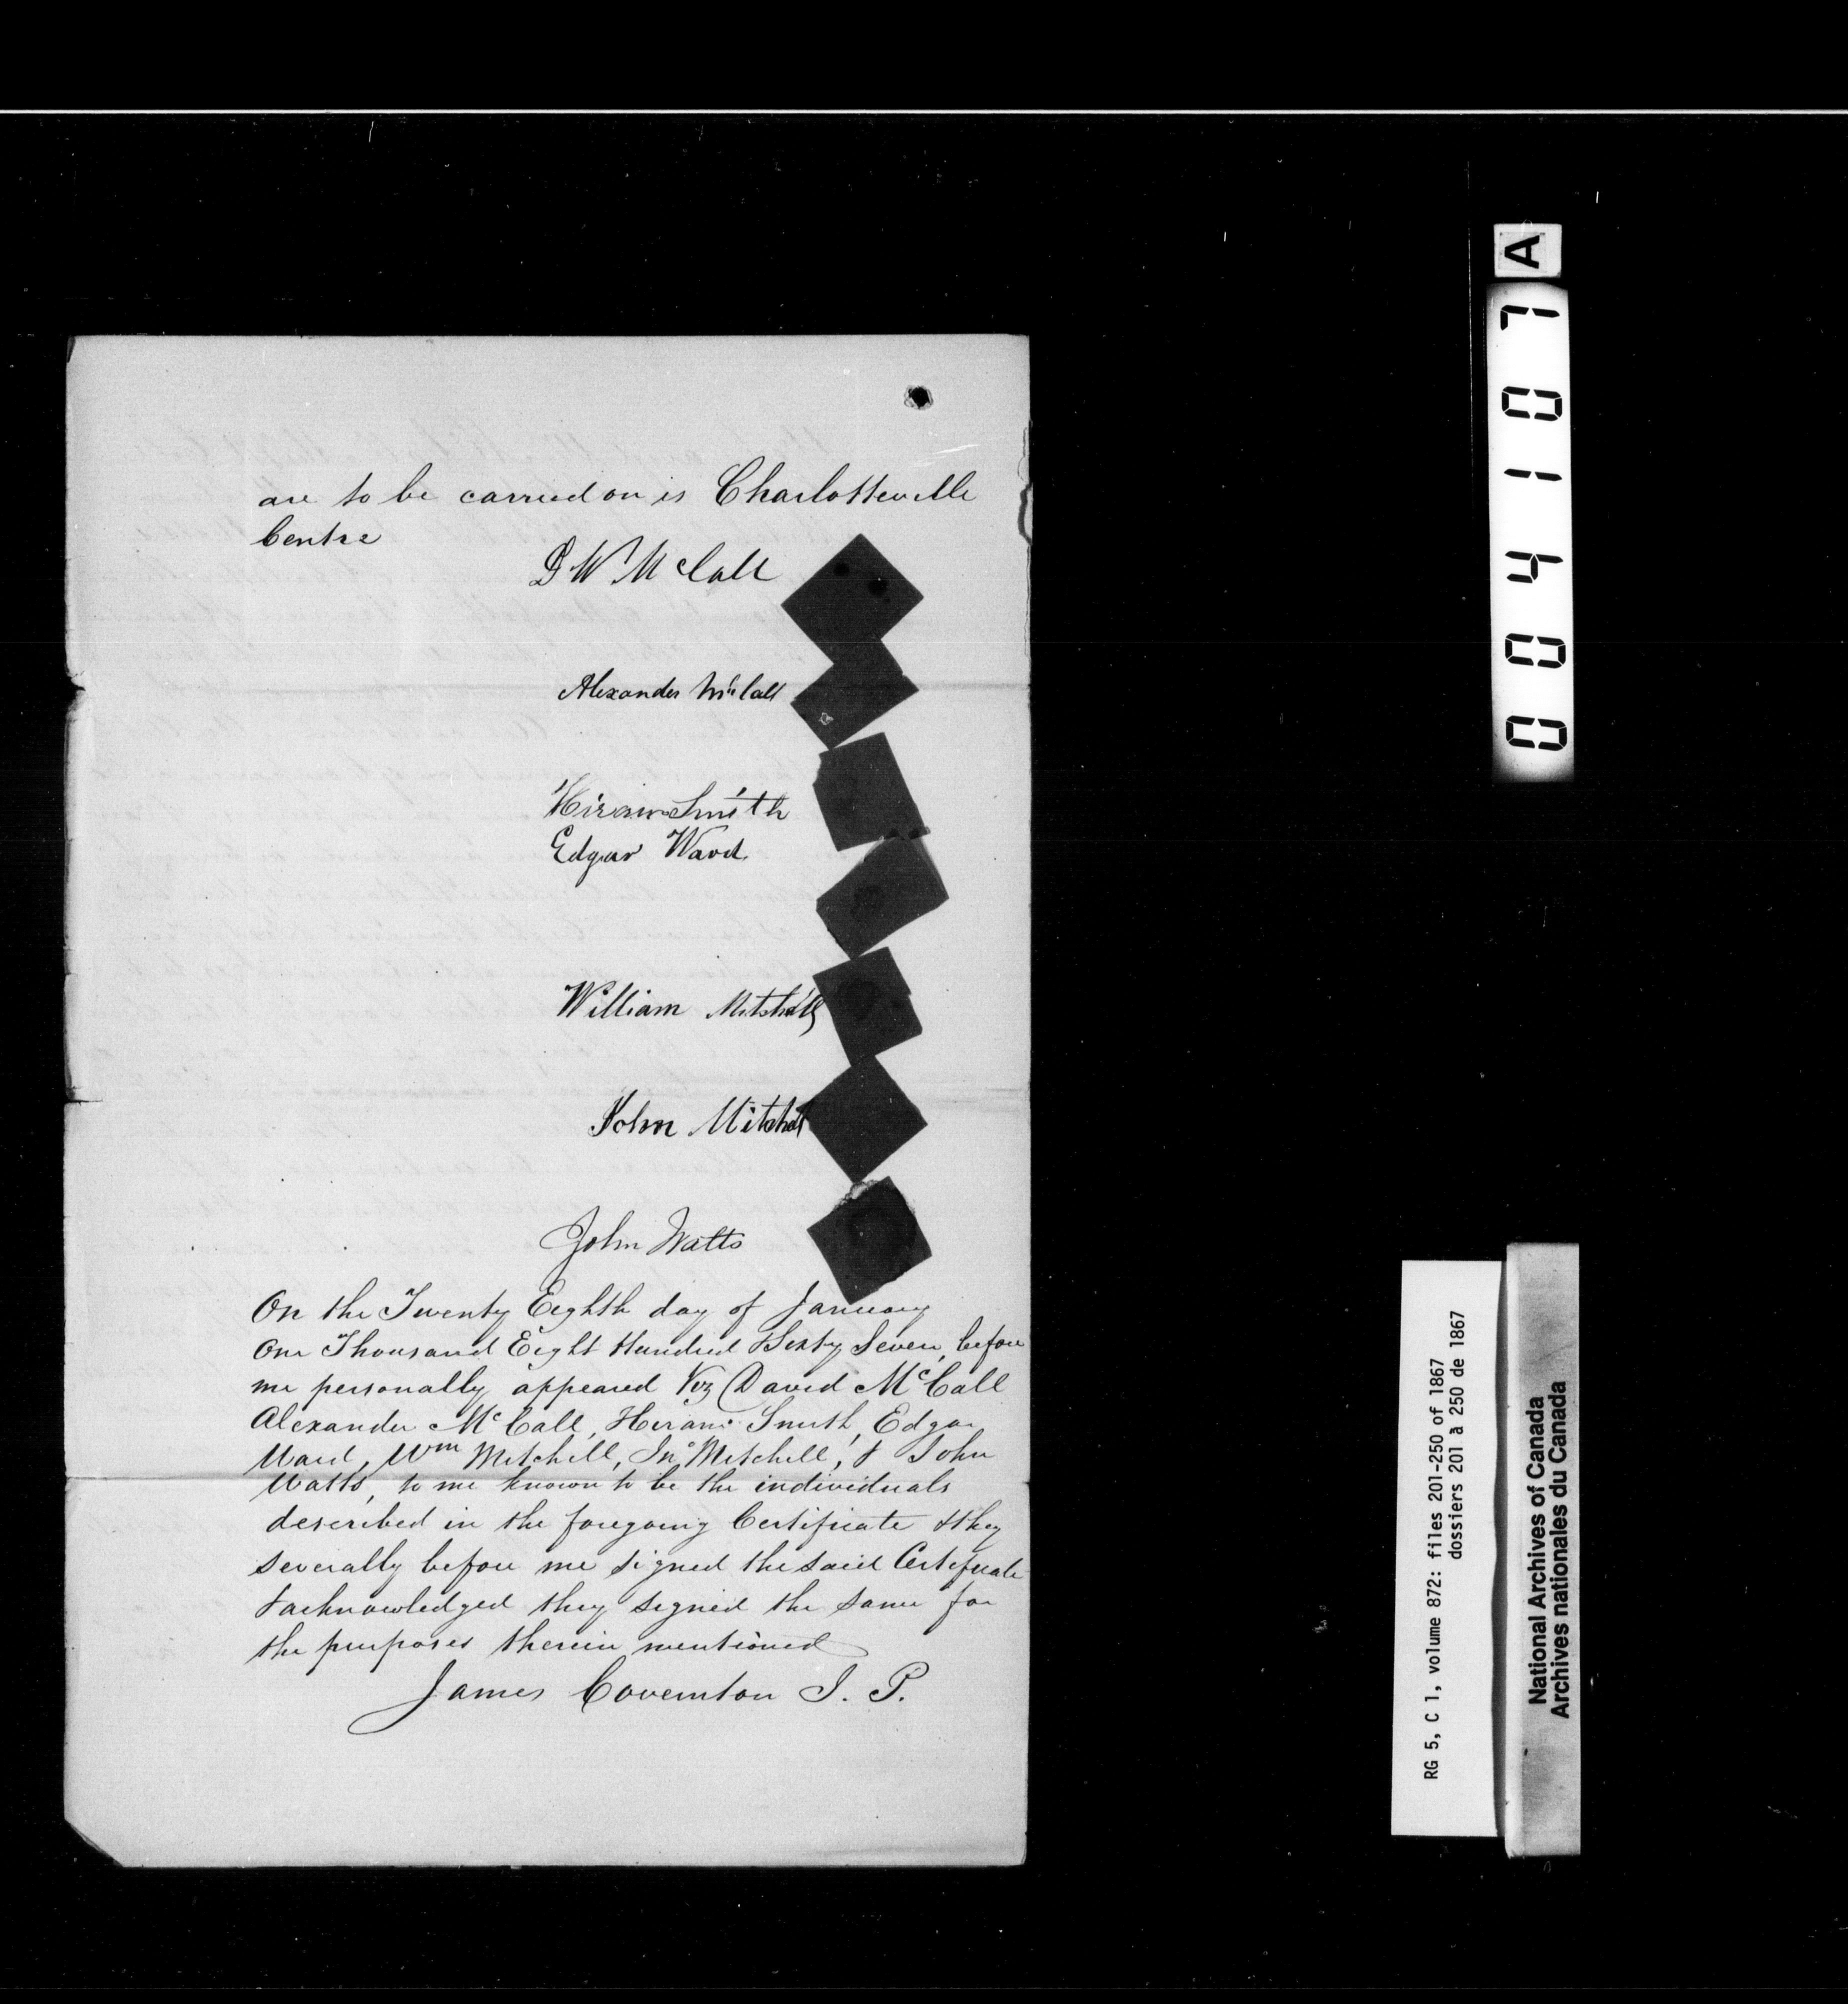 are to be carried on is Charlotteville
Centre
D W McCall
Alexander McCall
Hiram Smith
Edgar Ward
William Mitchell
John Mitchell
John Watts
On the Twenty Eighth day of January
One Thousand Eight Hundred Sixty Seven, before
me personally appeared Viz David McCall
Alexander McCall, Hiram Smith, Edgar
Ward, Wm Mitchell, Jno Mitchell, & John
Watts, to me known to be the individuals
described in the foregoing Certificate & they
severally before me signed the said Certificate
& acknowledged they signed the same for
the purposes therein mentioned
James Covernton J. P.
004107
A
RG 5, C 1, volume 872: files 201-250 of 1867
dossiers 201 à 250 de 1867
National Archives of Canada
Archives nationales du Canada